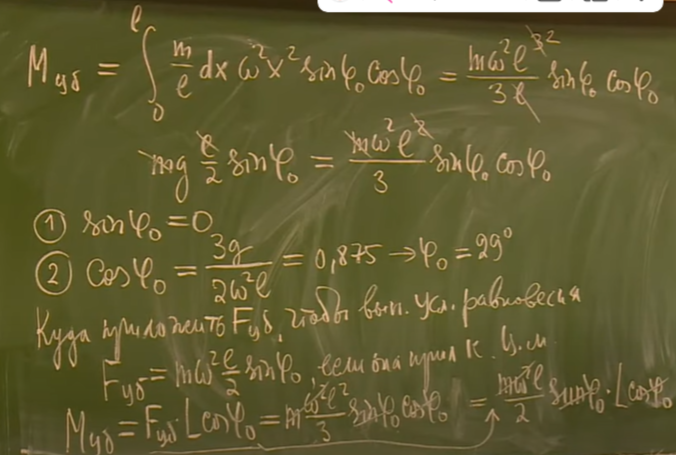 M_уб = ∫₀^l m/l dx ω²x² sinφ₀ cosφ₀ = mω²l³²/3l sinφ₀ cosφ₀
mg l/2 sinφ₀ = mω²l²/3 sinφ₀ cosφ₀
① sinφ₀ = 0
② cosφ₀ = 3g/2ω²l = 0,875 → φ₀ = 29°
Куда приложить F_уб, чтобы вып. усл. равновесия
F_уб = mω² l/2 sinφ₀, если она прил к ц.м.
M_уб = F_уб·L cosφ₀ = m ω²l²/3 sinφ₀ cosφ₀ = mω²l/2 sinφ₀·L cosφ₀